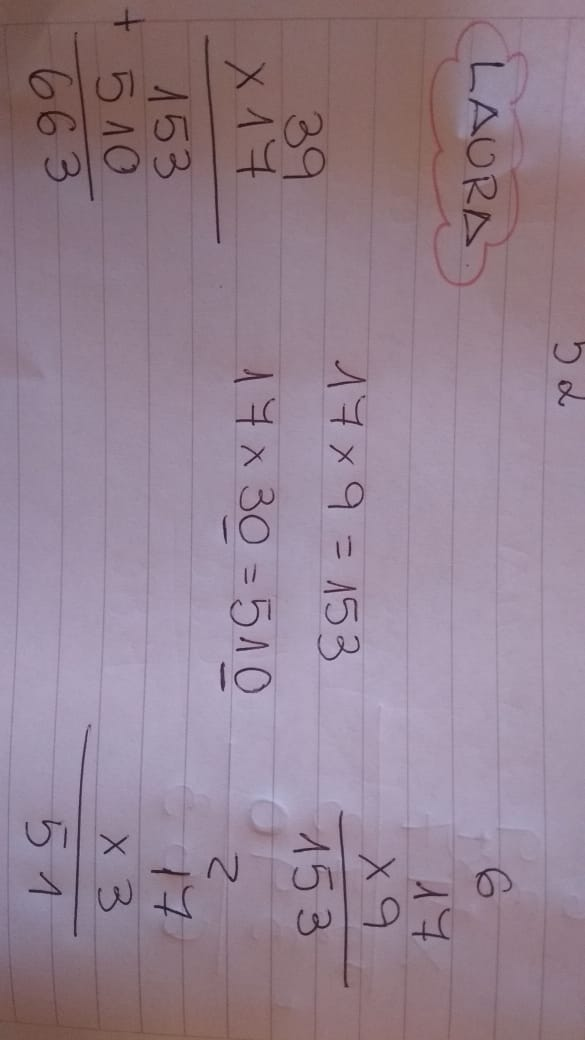 52
LAURA.
39
x 17
153
+ 510
663
17 x 9 = 153
17 x 30 = 510
6
17
x 9
153
2
17
x 3
51